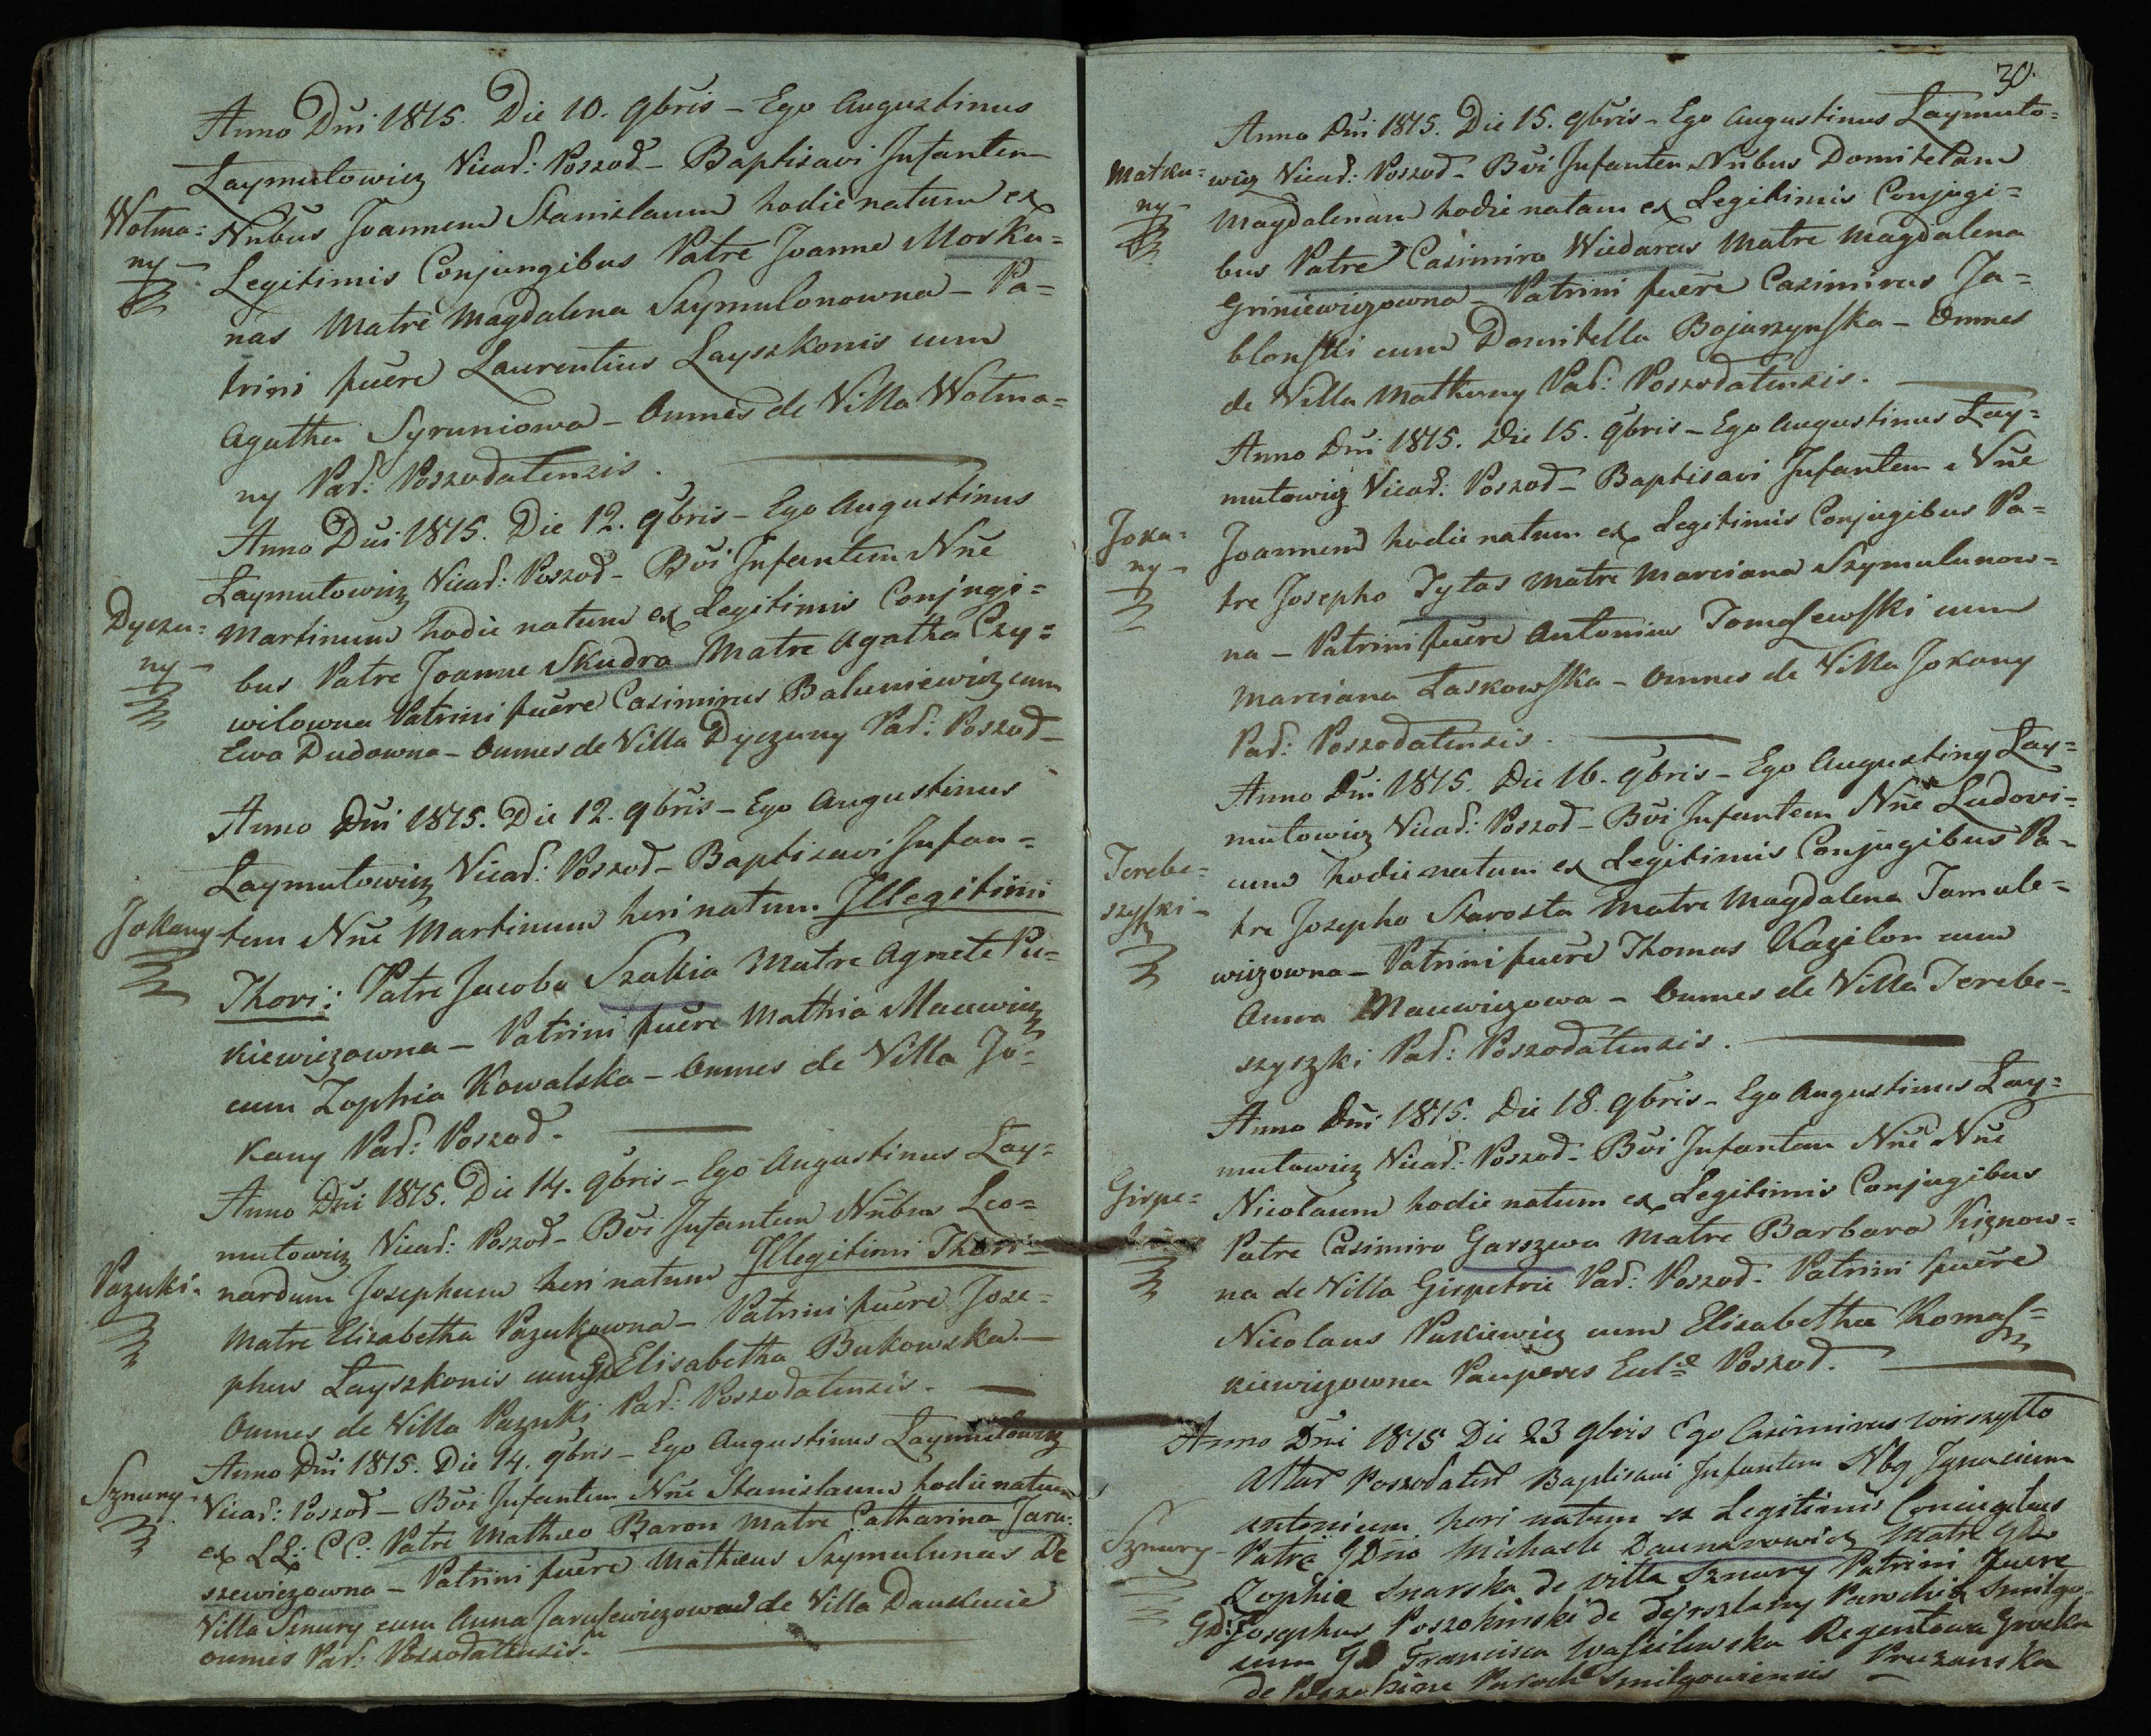 Anno Dni 1815. Die 10. 9bris – Ego Augustinus
Laymutowicz Vicar: Poszod – Baptisavi Infantem
Wotma=
ny
Nnibus Joannem Stanislaum hodie natum ex
Legitimis Conjungibus Patre Joanne Mosku=
nas Matre Magdalena Szymulonowna – Pa=
trini fuere Laurentius Layszkonis cum
Agatha Syruniowa – Omnes de Villa Wotma=
ny Par: Poszodatensis.
Anno Dni 1815. Die 12. 9bris – Ego Augustinus
Laymutowicz Vicar: Poszod – Bvi Infantem Nne
Dyczu=
ny
Martinum hodie natum ex Legitimis Conjugi=
bus Patre Joanne Skudra Matre Agatha Czy=
wilowna Patrini fuere Casimirus Baluniewicz cum
Ewa Dudowna – Omnes de Villa Dyczuny Par: Poszod –
Anno Dni 1815. Die 12. 9bris – Ego Augustinus
Laymutowicz Vicar: Poszod – Baptisavi Infan=
Jokany
tem Nne Martinum heri natum Illegitimi
Thori: Patre Jacobo Szakia Matre Agnete Pu=
kiewiczowna – Patrini fuere Mathia Macewicz
cum Zophia Kowalska – Omnes de Villa Jo=
kany Par: Poszod –
Anno Dni 1815. Die 14. 9bris – Ego Augustinus Lay=
mutowicz Vicar: Poszod – Bvi Infantem Nnibus Leo=
Pazuki
nardum Josephum heri natum Illegitimi Thori –
Matre Elisabetha Pazukowna – Patrini fuere Jose=
phus Layszkonis cum Elisabetha Bukowska –
Omnes de Villa Pazuki Par: Poszodatensis.
Anno Dni 1815. Die 14. 9bris – Ego Augustinus Laymutowicz
Sznury
Vicar: Poszod – Bvi Infantem Nne Stanislaum hodie natum
ex LL: CC: Patre Matheo Baron Matre Catharina Jaru=
szewiczowna – Patrini fuere Matheus Szymulunas De
Villa Sznury cum Anna Jarusewiczowna de Villa Daukucie
omnes Par: Poszodatensis.
30.
Anno Dni 1815. Die 15. 9bris – Ego Augustinus Laymuto=
Matku=
ny
wicz Vicar: Poszod – Bvi Infantem Nnibus Domitelam
Magdalenam hodie natam ex Legitimis Conjugi=
bus Patre Casimiro Wiedaras Matre Magdalena
Griniewiczowna – Patrini fuere Casimirus Ja=
blonski cum Domitella Bojarzynska – Omnes
de Villa Matkuny Par: Poszodatensis.
Anno Dni 1815. Die 15. 9bris – Ego Augustinus Lay=
mutowicz Vicar: Poszod – Baptisavi Infantem Nne
Joka=
ny
Joannem hodie natum ex Legitimis Conjugibus Pa=
tre Josepho Tytas Matre Marciana Szymulunow=
na – Patrini fuere Antonius Tomasewski cum
Marciana Laskowska – Omnes de Villa Jokany
Par: Poszodatensis.
Anno Dni 1815. Die 16. 9bris – Ego Augusting Lay=
mutowicz Vicar: Poszod – Bvi Infantem Nne Ludovi=
Terebe=
szyski
cum hodie natum ex Legitimis Conjugibus Pa=
tre Josepho Starosta Matre Magdalena Jamule=
wiczowna – Patrini fuere Thomas Kazilon cum
Anna Macewiczowa – Omnes de Villa Terebe=
szyszki Par: Poszodatensis.
Anno Dni 1815. Die 18. 9bris – Ego Augustinus Lay=
mutowicz Vicar: Poszod – Bvi Infantem Nne Nne
Girpe=
Nicolaum hodie natum ex Legitimis Conjugibus
Patre Casimiro Garszwa Matre Barbara Kiznow=
na de Villa Girpetrie Par: Poszod – Patrini fuere
Nicolaus Puskiewicz cum Elisabetha Romas=
kiewiczowna Pauperes Poszod.
Anno Dni 1815 Die 23 9bris Ego Casimirus Wirszytto
Altar Poszodaten Baptisavi Infantem Nbq Ignacium
Antonium heri natum ex Legitimis Coniugibus
Sznury
Patre GDno Michaele Daunarowicz Matre GD
Zophia Snarska de villa Sznury Patrini fuere
GD: Josephus Poszokinski de Dejrszlany Parochia Smilgo
cum GD Francisca Wasilewska Regentowa Grocka
de Paroch Smilgowiensis Pruzanska